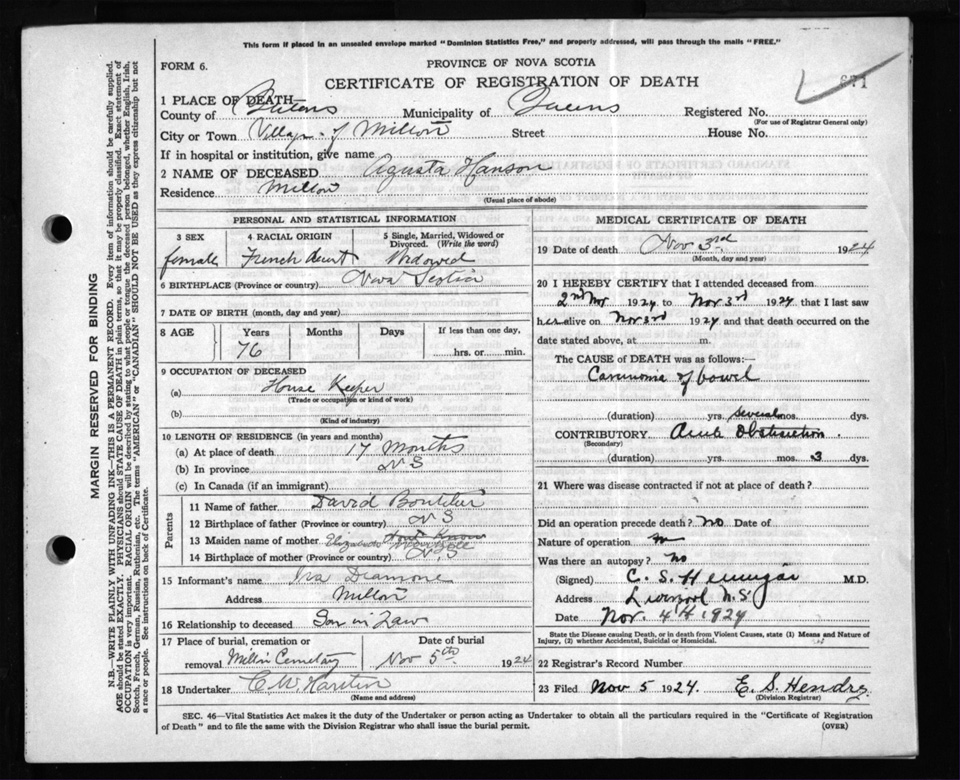 This form if placed in an unsealed envelope marked "Dominion Statistics Free," and properly addressed, will pass through the mails "FREE."
FORM 6.
PROVINCE OF NOVA SCOTIA
CERTIFICATE OF REGISTRATION OF DEATH
1 PLACE OF DEATH
County of Municipality of Queens Registered No.
(For use of Registrar General only)
City or Town Village of Milton Street House No.
If in hospital or institution, give name
2 NAME OF DECEASED Agusta Hanson
Residence Milton
(Usual place of abode)
PERSONAL AND STATISTICAL INFORMATION
3 SEX 4 RACIAL ORIGIN 5 Single, Married, Widowed or Divorced. (Write the word)
female French Widowed
6 BIRTHPLACE (Province or country) Nova Scotia
7 DATE OF BIRTH (month, day and year)
8 AGE Years Months Days If less than one day,
76 hrs. or min.
9 OCCUPATION OF DECEASED
(a) House Keeper
(Trade or occupation or kind of work)
(b)
(Kind of industry)
10 LENGTH OF RESIDENCE (in years and months)
(a) At place of death 17 Months
(b) In province N S
(c) In Canada (if an immigrant)
Parents
11 Name of father David
12 Birthplace of father (Province or country) N S
13 Maiden name of mother Elizabeth
14 Birthplace of mother (Province or country) N S
15 Informant's name Ira
Address Milton
16 Relationship to deceased Son in Law
17 Place of burial, cremation or removal Date of burial
Milton Cemetary Nov 5th 1924
18 Undertaker
(Name and address)
MEDICAL CERTIFICATE OF DEATH
19 Date of death Nov 3rd 1924
(Month, day and year)
20 I HEREBY CERTIFY that I attended deceased from
2nd Nov 1924 to Nov 3rd 1924 that I last saw
her alive on Nov 3rd 1924 and that death occurred on the
date stated above, at m.
The CAUSE of DEATH was as follows:—
Carcinoma of bowel
(duration) yrs. several mos. dys.
CONTRIBUTORY Acute Obstruction.
(Secondary)
(duration) yrs. mos. 3 dys.
21 Where was disease contracted if not at place of death?
Did an operation precede death? no Date of
Nature of operation
Was there an autopsy? No
(Signed) C. S. M.D.
Address Liverpool N.S.
Date Nov. 4th 1924
State the Disease causing Death, or in death from Violent Causes, state (1) Means and Nature of
Injury, (2) whether Accidental, Suicidal or Homicidal.
22 Registrar's Record Number
23 Filed Nov 5 1924. E. S. Hendry
(Division Registrar)
SEC. 46—Vital Statistics Act makes it the duty of the Undertaker or person acting as Undertaker to obtain all the particulars required in the "Certificate of Registration
of Death" and to file the same with the Division Registrar who shall issue the burial permit.
(OVER)
MARGIN RESERVED FOR BINDING
N.B.—WRITE PLAINLY WITH UNFADING INK—THIS IS A PERMANENT RECORD. Every item of information should be carefully supplied.
AGE should be stated EXACTLY. PHYSICIANS should STATE CAUSE OF DEATH in plain terms, so that it may be properly classified. Exact statement of
OCCUPATION is very important. RACIAL ORIGIN will be described by stating to what people or tongue the deceased person belonged, whether English, Irish,
Scotch, French, German, Russian, Ruthenian, etc. The terms "AMERICAN" or "CANADIAN" SHOULD NOT BE USED as they express citizenship but not
a race or people. See instructions on back of Certificate.